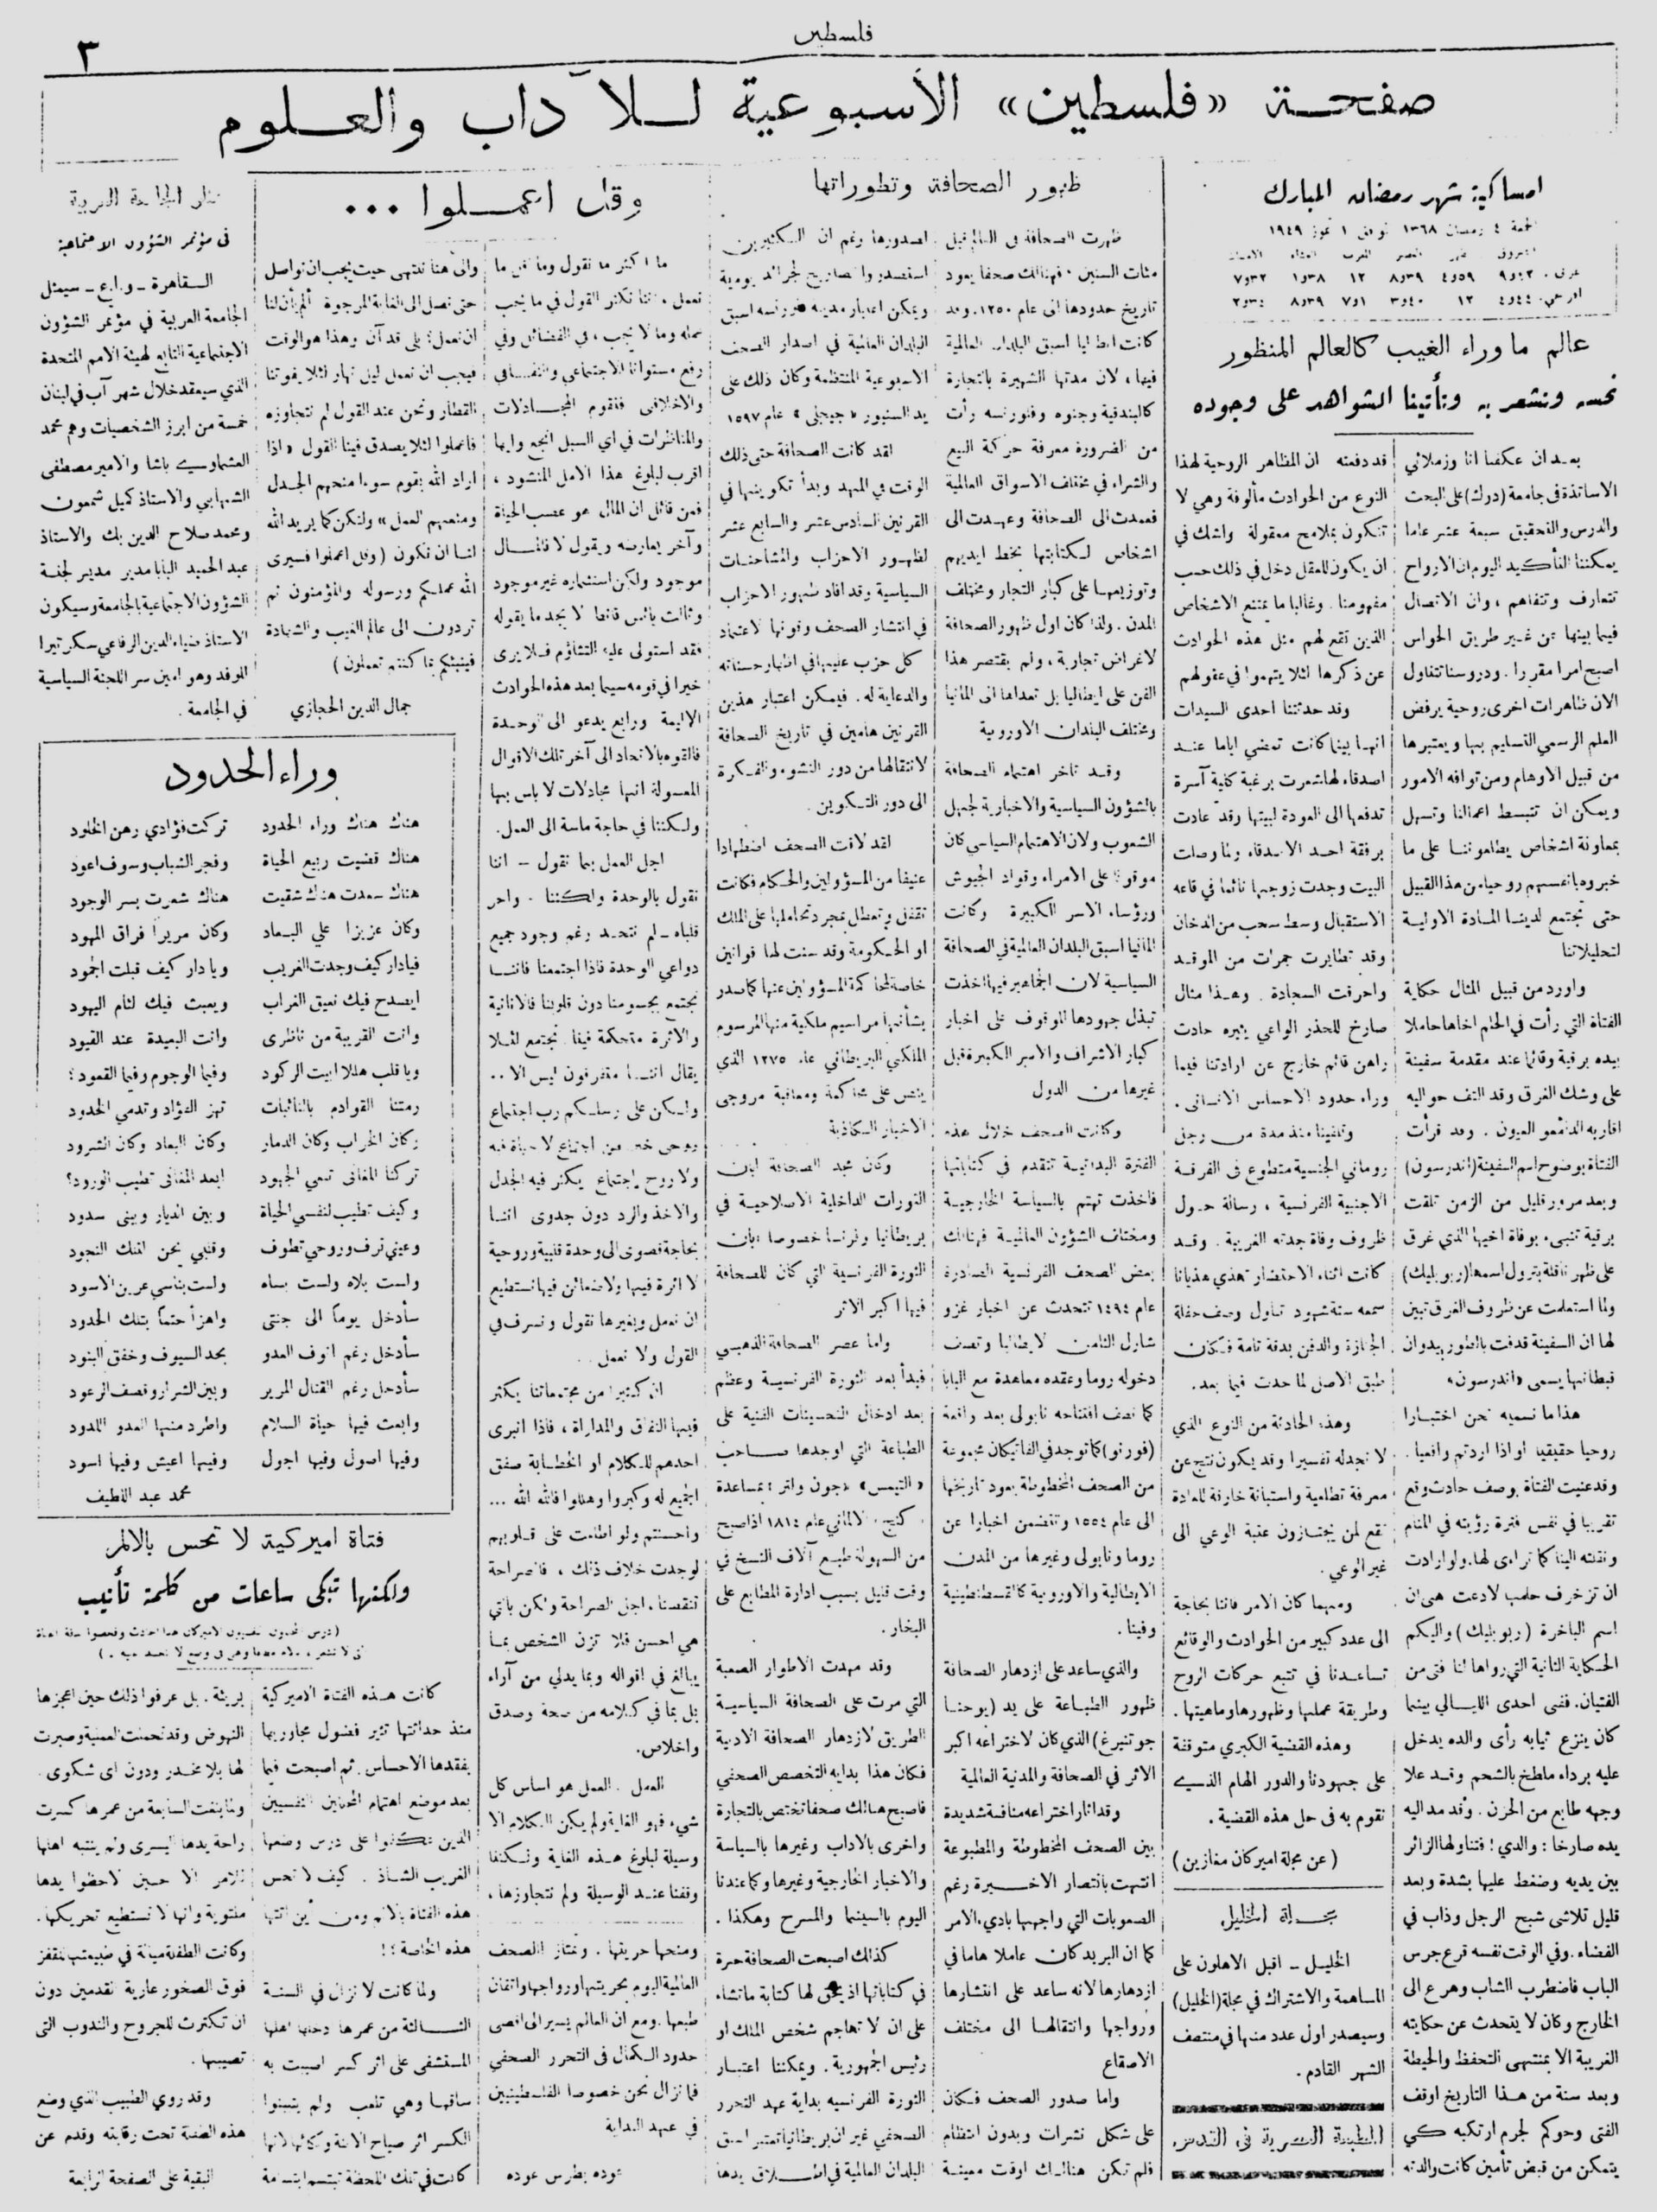 فلسطين
٣
صفحة «فلسطين» الأسبوعية للآداب والعلوم
امساكية شهر رمضان المبارك
الجمعة ٤ رمضان ١٣٦٨ توفق ١ تموز ١٩٤٩
عالم ما وراء الغيب كالعالم المنظور
نحسه ونشعر به وتأتينا الشواهد على وجوده
بعد ان عكفنا انا وزملائي
الاساتذة في جامعة (درك) على البحث
والدرس والتحقيق سبعة عشر عاما
يمكننا التأكيد اليوم ان الارواح
تتعارف وتتفاهم ، وان الاتصال
فيما بينها عن غير طريق الحواس
اصبح امرا مقررا . ودروسنا تتناول
الان ظاهرات اخرى روحية يرفض
العلم الرسمي التسليم بها ويعتبرها
من قبيل الاوهام ومن توافه الامور
ويمكن ان تتبسط اعمالنا وتسهل
بمعاونة اشخاص يطلعوننا على ما
خبروه بانفسهم روحيا من هذا القبيل
حتى تجتمع لدينا المادة الاولية
لتحليلاتنا
واورد من قبيل المثال حكاية
الفتاة التي رأت في الحلم اخاها حاملا
بيده برقية وقائما عند مقدمة سفينة
على وشك الغرق وقد التف حواليه
اقاربه الدامعو العيون . وقد قرأت
الفتاة بوضوح اسم السفينة (اندرسون)
وبعد مرور قليل من الزمن تلقت
برقية تنبىء بوفاة اخيها الذي غرق
على ظهر ناقلة بترول اسمها (ربوبليك)
ولما استعلمت عن ظروف الغرق تبين
لها ان السفينة قدفت بالطوربيد وان
قبطانها يسمى «اندرسون»
هذا ما نسميه نحن اختبارا
روحيا حقيقيا او اذا اردتم واقعيا .
وقد عنيت الفتاة بوصف حادث وقع
تقريبا في نفس فترة رؤيته في المنام
ونقلته الينا كما تراءى لها. ولو ارادت
ان تزخرف حلمها لادعت هي ان
اسم الباخرة (ربوبليك) واليكم
الحكاية الثانية التي رواها لنا فتى من
الفتيان. ففي احدى الليالي بينما
كان ينزع ثيابه رأى والده يدخل
عليه برداء ملطخ بالشحم وقد علا
وجهه طابع من الحزن . وقد مد اليه
يده صارخا : والدي ! فتناولها الزائر
بين يديه وضغط عليها بشدة وبعد
قليل تلاشى شبح الرجل وذاب في
الفضاء . وفي الوقت نفسه قرع جرس
الباب فاضطرب الشاب وهرع الى
الخارج وكان لا يتحدث عن حكايته
الغريبة الا بمنتهى التحفظ والحيطة
وبعد سنة من هذا التاريخ اوقف
الفتى وحوكم لجرم ارتكبه كي
يتمكن من قبض تأمين كانت والدته
قد دفعته ان المظاهر الروحية لهذا
النوع من الحوادث مألوفة وهي لا
تتكون بملامح معقولة واشك في
ان يكون للعقل دخل في ذلك حسب
مفهومنا . وغالبا ما يمتنع الاشخاص
الذين تقع لهم مثل هذه الحوادث
عن ذكرها لئلا يتهموا في عقولهم
وقد حدثتنا احدى السيدات
انها بينما كانت تمضي اياما عند
اصدقاء لها شعرت برغبة كلية آسرة
تدفعها الى العودة لبيتها وقد عادت
برفقة احد الاصدقاء ولما وصلت
البيت وجدت زوجها نائما في قاعة
الاستقبال وسط سحب من الدخان
وقد تطايرت جمرات من الموقد
واحرقت السجادة . وهذا مثال
صارخ للحذر الواعي يثيره حادث
راهن قائم خارج عن ارادتنا فيما
وراء حدود الاحساس الانساني .
وتلقينا منذ مدة من رجل
روماني الجنسية متطوع في الفرقة
الاجنبية الفرنسية ، رسالة حول
ظروف وفاة جدته الغريبة . وقد
كانت اثناء الاحتضار تهذي هذيانا
سمعه ستة شهود تناول وصف حفلة
الجنازة والدفن بدقة تامة فكان
طبق الاصل لما حدث فيما بعد .
وهذه الحادثة من النوع الذي
لا نجد له تفسيرا وقد يكون نتج عن
معرفة تطلعية واستبانة خارقة للعادة
تقع لمن يجتازون عقبة الوعي الى
غير الوعي .
ومهما كان الامر فاننا بحاجة
الى عدد كبير من الحوادث والوقائع
تساعدنا في تتبع حركات الروح
وطريقة عملها وظهورها وماهيتها .
وهذه القضية الكبرى متوقفة
على جهودنا والدور الهام الذي
نقوم به في حل هذه القضية .
(عن مجلة اميركان مغازين)
مجلة الخليل
الخليل ـ اقبل الاهلون على
المساهمة والاشتراك في مجلة (الخليل)
وسيصدر اول عدد منها في منتصف
الشهر القادم .
المطبعة العصرية في القدس
ظهور الصحافة وتطوراتها
ظهرت الصحافة في العالم قبل
مئات السنين ، فهنالك صحفا يعود
تاريخ حدودها الى عام ١٢٥٠. وقد
كانت ايطاليا اسبق البلدان العالمية
فيها ، لان مدتها الشهيرة بالتجارة
كالبندقية وجنوه وفلورنسه رأت
من الضرورة معرفة حركة البيع
والشراء في مختلف الاسواق العالمية
فعمدت الى الصحافة وعهدت الى
اشخاص لكتابتها بخط ايديهم
وتوزيعها على كبار التجار ومختلف
المدن . ولذا كان اول ظهور الصحافة
لاغراض تجارية ، ولم يقتصر هذا
الفن على ايطاليا بل تعداها الى المانيا
ومختلف البلدان الاوروبية
وقد تأخر اهتمام الصحافة
بالشؤون السياسية والاخبارية لجهل
الشعوب ولان الاهتمام السياسي كان
موقوفا على الامراء وقواد الجيوش
ورؤساء الاسر الكبيرة وكانت
المانيا اسبق البلدان العالمية في الصحافة
السياسية لان الجماهير فيها اخذت
تبذل جهودها للوقوف على اخبار
كبار الاشراف والاسر الكبيرة قبل
غيرها من الدول
وكانت الصحف خلال هذه
الفترة البدائية تتقدم في كتاباتها
فاخذت تهتم بالسياسة الخارجية
ومختلف الشؤون العالمية فهنالك
بعض الصحف الفرنسية الصادرة
عام ١٤٩٤ تتحدث عن اخبار غزو
شارل الثامن لايطاليا وتصف
دخوله روما وعقده معاهدة مع البابا
كما تصف افتتاحه نابولي بعد واقعة
(فورنو) كما توجد في الفاتيكان مجموعة
من الصحف المخطوطة يعود تاريخها
الى عام ١٥٥٤ وتتضمن اخبارا عن
روما ونابولي وغيرها من المدن
الايطالية والاوروبية كالقسطنطينية
وفينا .
والذي ساعد على ازدهار الصحافة
ظهور الطباعة على يد (يوحنا
جوتنبرغ) الذي كان لاختراعه اكبر
الاثر في الصحافة والمدنية العالمية
وقد اثار اختراعه منافسة شديدة
بين الصحف المخطوطة والمطبوعة
انتهت بانتصار الاخيرة رغم
الصعوبات التي واجهها بادىء الامر
كما ان البريد كان عاملا هاما في
ازدهارها لانه ساعد على انتشارها
ورواجها وانتقالها الى مختلف
الاصقاع
واما صدور الصحف فكان
على شكل نشرات وبدون انتظام
فلم تكن هنالك اوقات معينة
لصدورها رغم ان الكثيرين
ويمكن اعتبار مدينة فلورنسه اسبق
البلدان العالمية في اصدار الصحف
الاسبوعية المنتظمة وكان ذلك على
يد السنيور «جيجلي» عام ١٥٩٧
لقد كانت الصحافة حتى ذلك
الوقت في المهد وبدأ تكوينها في
القرنين السادس عشر والسابع عشر
لظهور الاحزاب والمشاحنات
السياسية وقد افاد ظهور الاحزاب
في انتشار الصحف وقوتها لاعتماد
كل حزب عليها في اظهار حسناته
والدعاية له . فيمكن اعتبار هذين
القرنين هامين في تاريخ الصحافة
لانتقالها من دور النشوء والفكرة
الى دور التكوين .
لقد لاقت الصحف اضطهادا
عنيفا من المسؤولين والحكام فكانت
تقفل وتعطل بمجرد تحاملها على الملك
او الحكومة وقد سنت لها قوانين
خاصة لمحاكمة المسؤولين عنها كما صدر
بشأنها مراسيم ملكية منها المرسوم
الملكي البريطاني عام ١٢٧٥ الذي
ينص على محاكمة ومعاقبة مروجي
الاخبار الكاذبة
وكان مجد الصحافة ابان
الثورات الداخلية الاصلاحية في
بريطانيا وفرنسا خصوصا ابان
الثورة الفرنسية التي كان للصحافة
فيها اكبر الاثر
واما عصر الصحافة الذهبي
فبدأ بعد الثورة الفرنسية وعظم
بعد ادخال التحسينات الفنية على
الطباعة التي اوجدها صاحب
«التيمس» «جون والتر» بمساعدة
«كنج» الالماني عام ١٨١٤ اذ اصبح
من السهولة طبع آلاف النسخ في
وقت قليل بسبب ادارة المطابع على
البخار .
وقد مهدت الاطوار الصعبة
التي مرت على الصحافة السياسية
الطريق لازدهار الصحافة الادبية
فكان هذا بداية التخصص الصحفي
فاصبح هنالك صحفا تختص بالتجارة
واخرى بالاداب وغيرها بالسياسة
والاخبار الخارجية وغيرها وكما عندنا
اليوم بالسينما والمسرح وهكذا .
كذلك اصبحت الصحافة حرة
في كتاباتها اذ يحق لها كتابة ما تشاء
على ان لا تهاجم شخص الملك او
رئيس الجمهورية . ويمكننا اعتبار
الثورة الفرنسيه بداية عهد التحرر
الصحفي غير ان بريطانيا تعتبر اسبق
البلدان العالمية في اطلاق يدها
ومنحها حريتها . وتمتاز الصحف
العالمية اليوم بحريتها ورواجها واتقان
طبعها . ومع ان العالم يسير الى اقصى
حدود الكمال في التحرر الصحفي
فما نزال نحن خصوصا الفلسطينيين
في عهد البداية
عوده بطرس عوده
وقل اعملوا ...
ما اكثر ما نقول وما اقل ما
نعمل . اننا نكثر القول في ما يجب
عمله وما لا يجب ، في الفضائل وفي
رفع مستوانا الاجتماعي والثقافي
والاخلاقي فتقوم المجادلات
والمناظرات في اي السبل انجع وايها
اقرب لبلوغ هذا الامل المنشود ،
فمن قائل ان المال هو عصب الحياة
وآخر يعارضه ويقول لا فالمال
موجود ولكن استثماره غير موجود
وثالث يائس قانط لا يجد ما يقوله
فقد استولى عليه التشاؤم فلا يرى
خيرا في قومه سيما بعد هذه الحوادث
الاليمة ورابع يدعو الى الوحدة
فالقوه بالاتحاد الى آخر تلك الاقوال
المعسولة انها مجادلات لا باس بها
ولكننا في حاجة ماسة الى العمل .
اجل العمل بما نقول ـ اننا
نقول بالوحدة ولكننا . واحر
قلباه ـ لم نتحد رغم وجود جميع
دواعي الوحدة فاذا اجتمعنا فاننا
نجتمع بجسومنا دون قلوبنا فالانانية
والاثرة متحكمة فينا . نجتمع لئلا
يقال اننا متفرقون ليس الا ..
ولكن على رسلكم رب اجتماع
روحي خير من اجتماع لا حياة فيه
ولا روح اجتماع يكثر فيه الجدل
والاخذ والرد دون جدوى اننا
بحاجة قصوى الى وحدة قلبية وروحية
لا اثرة فيها ولا ضغائن فيها نستطيع
ان نعمل وبغيرها نقول ونسرف في
القول ولا نعمل .
ان كثيرا من مجتمعاتنا يكثر
فيها النفاق والمداراة ، فاذا انبرى
احدهم للكلام او الخطابة صفق
الجميع له وكبروا وهللوا فالله الله ...
واحسنتم ولو اطلعت على قلوبهم
لوجدت خلاف ذلك ، فالصراحة
تنقصنا . اجل الصراحة ولكن بالتي
هي احسن فلا تزن الشخص بما
يبالغ في اقواله وبما يدلي من آراء
بل بما في كلامه من صحة وصدق
واخلاص .
العمل . العمل هو اساس كل
شيء فهو الغاية ولم يكن الكلام الا
وسيلة لبلوغ هذه الغاية ولكننا
وقفنا عند الوسيلة ولم نتجاوزها ،
والى هنا ننتهى حيث يجب ان نواصل
حتى نصل الى الغاية المرجوة ألم يأن لنا
ان نعمل؛ بلى قد آن وهذا هو الوقت
فيجب ان نعمل ليل نهار لئلا يفوتنا
القطار ونحن عند القول لم نتجاوزه
فاعملوا لئلا يصدق فينا القول «اذا
اراد الله بقوم سوءا منحهم الجدل
ومنعهم العمل» ولنكن كما يريد الله
لنا ان نكون (وقل اعملوا فسيرى
الله عملكم ورسوله والمؤمنون ثم
تردون الى عالم الغيب والشهادة
فينبئكم بما كنتم تعملون)
جمال الدين الحجازي
في مؤتمر الشؤون الاجتماعية
القاهرة ـ و.ا.ع ـ سيمثل
الجامعة العربية في مؤتمر الشؤون
الاجتماعية التابع لهيئة الامم المتحدة
الذي سيعقد خلال شهر آب في لبنان
خمسة من ابرز الشخصيات وهم محمد
العشماوي باشا والامير مصطفى
الشهابي والاستاذ كميل شمعون
ومحمد صلاح الدين بك والاستاذ
عبد الحميد البابا مدير مدير لجنة
الشؤون الاجتماعية بالجامعة وسيكون
الاستاذ ضياء الدين الرفاعي سكرتيرا
للوفد وهو امين سر اللجنة السياسية
في الجامعة .
وراء الحدود
هناك هناك وراء الحدود تركت فؤادي رهن الخلود
هناك قضيت ربيع الحياة وفجر الشباب وسوف اعود
هناك سعدت هناك شقيت هناك شعرت بسر الوجود
وكان عزيزا علي البعاد وكان مريرا فراق المهود
فيادار كيف وجدت الغريب ويا دار كيف قبلت الجمود
ايصدح فيك نعيق الغراب ويعبث فيك لئام اليهود
وانت القريبة من ناظرى وانت البعيدة عند القيود
ويا قلب هلا ابيت الركود وفيما الوجوم وفيما القعود ؛
رمتنا القوادم بالنائبات تهز الفؤاد وتدمي الخدود
وكان الخراب وكان الدمار وكان البعاد وكان الشرود
تركنا المغانى تعي الجهود ابعد المغانى تطيب الورود ؟
وكيف تطيب لنفسي الحياة وبين الديار وبيني سدود
وعيني ترف وروحي تطوف وقلبي يحن لتلك النجود
ولست بلاه ولست بساه ولست بناسي عرين الاسود
سأدخل يوماً الى جنتى واهزأ حتماً بتلك الحدود
سأدخل رغم انوف العدو بحد السيوف وخفق البنود
سأدخل رغم القتال المرير وبين الشرار وقصف الرعود
وابعث فيها حياة السلام واطرد منها العدو اللدود
وفيها اصول وفيها اجول وفيها اعيش وفيها اسود
محمد عبد اللطيف
فتاة اميركية لا تحس بالالم
ولكنها تبكى ساعات من كلمة تأنيب
كانت هذه الفتاة الاميركية
منذ حداثتها تثير فضول مجاوريها
بفقدها الاحساس . ثم اصبحت فيما
بعد موضع اهتمام المحللين النفسيين
الذين عكفوا على درس وضعها
الغريب الشاذ . كيف لا تحس
هذه الفتاة بالالم ومن أين اتتها
هذه الخاصة ؟ !
ولما كانت لا تزال في السنة
الثالثة من عمرها دخلها اهلها
المستشفى على اثر كسر اصيبت به
ساقها وهي تلعب ولم يتبينوا
الكسر اثر صياح الابنة وبكائها لانها
كانت في تلك اللحظة تبتسم ابتسامة
بريئة . بل عرفوا ذلك حين اعجزها
النهوض وقد تحملت العملية وصبرت
لها بلا مخدر ودون اى شكوى .
ولما بلغت السابعة من عمرها كسرت
راحة يدها اليسرى ولم ينتبه اهلها
للامر الا حين لاحظوا يدها
ملتوية وانها لا تستطيع تحريكها .
وكانت الطفلة ميالة في طبيعتها للقفز
فوق الصخور عارية القدمين دون
ان تكترث للجروح والندوب التى
تصيبها .
وقد روي الطبيب الذي وضع
هذه الطفلة تحت رقابته وقدم عن
البقية على الصفحة الرابعة